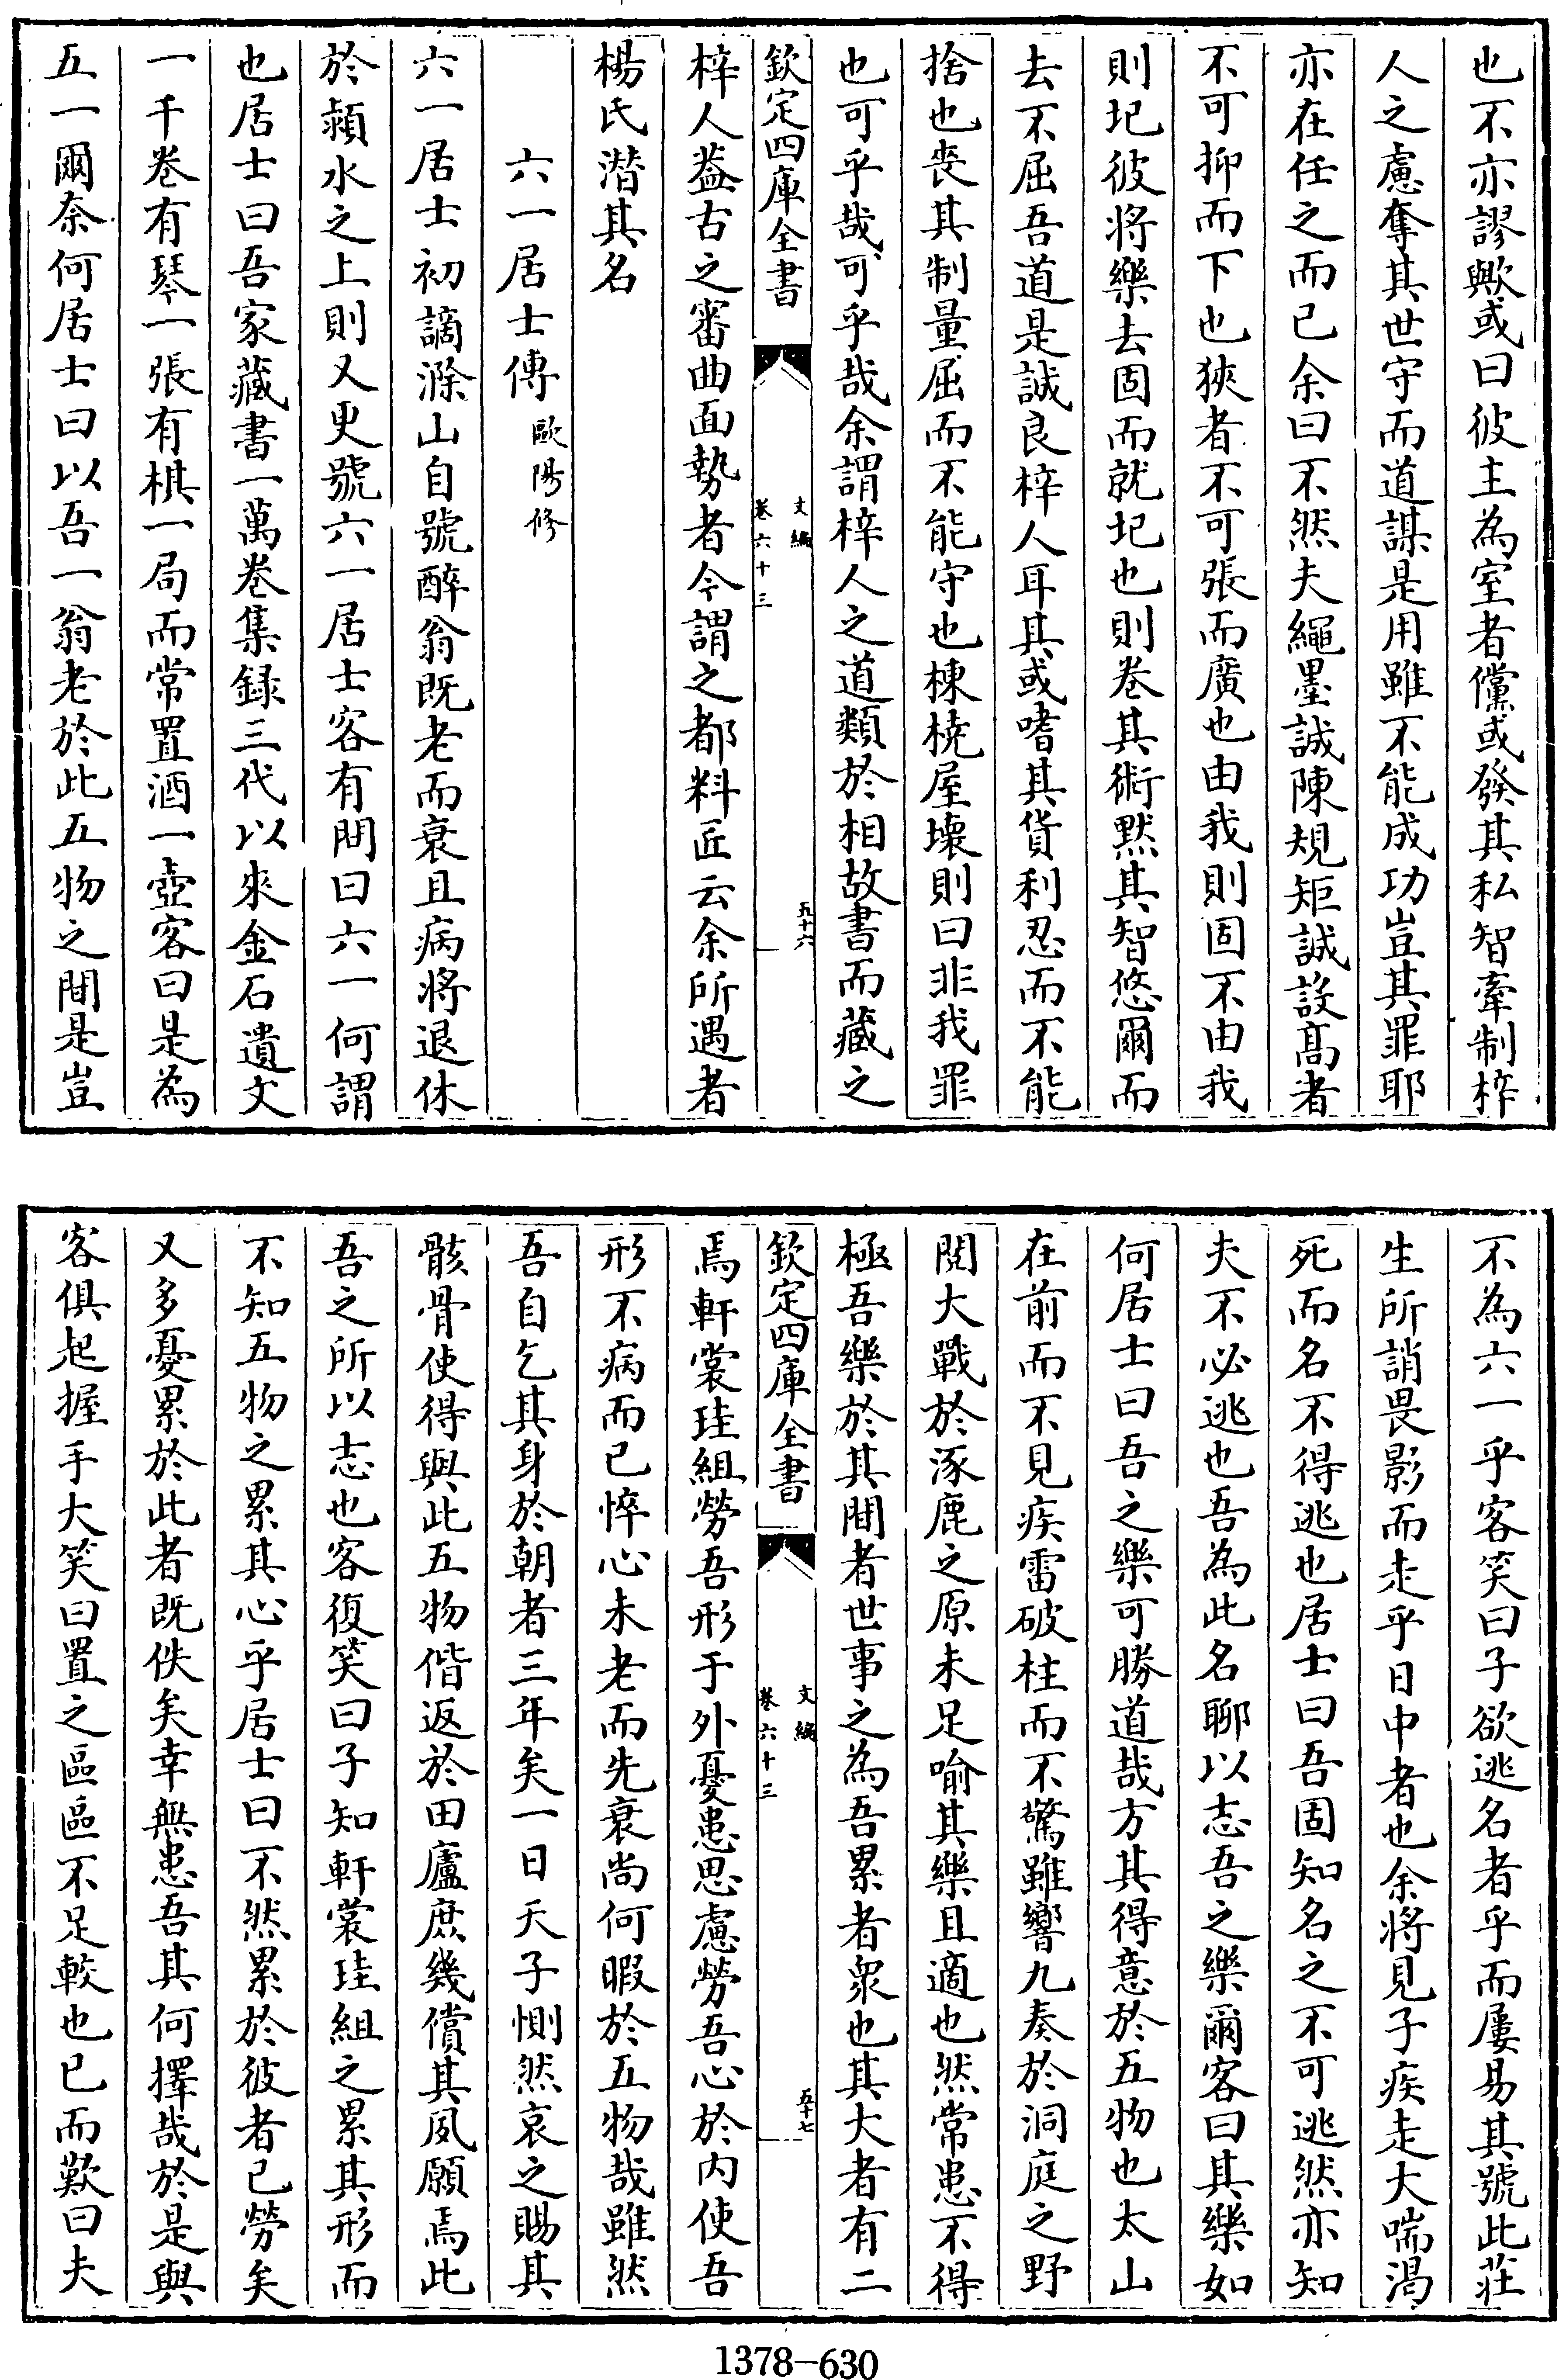 也不亦謬歟或曰彼主為室者儻或發其私智牽制梓
人之慮奪其世守而道謀是用雖不能成功豈其罪耶
亦在任之而已余曰不然夫繩墨誠陳規矩誠設髙者
不可抑而下也狹者不可張而廣也由我則固不由我
則圮彼将樂去固而就圮也則卷其術黙其智悠爾而
去不屈吾道是誠良梓人耳其或嗜其貨利忍而不能
捨也喪其制量屈而不能守也棟橈屋壞則曰非我罪
也可乎哉可乎哉余謂梓人之道類於相故書而藏之
欽定四庫全書
文編
卷六十三
五十六
梓人葢古之審曲面勢者今謂之都料匠云余所遇者
楊氏潛其名
六一居士傳歐陽修
六一居士初謫滁山自號醉翁既老而衰且病將退休
於潁水之上則又更號六一居士客有問曰六一何謂
也居士曰吾家藏書一萬卷集録三代以來金石遺文
一千卷有琴一張有棋一局而常置酒一壺客曰是為
五一爾奈何居士曰以吾一翁老於此五物之間是豈
不為六一乎客笑曰子欲逃名者乎而屢易其號此莊
生所誚畏影而走乎日中者也余將見子疾走大喘渇
死而名不得逃也居士曰吾固知名之不可逃然亦知
夫不必逃也吾為此名聊以志吾之樂爾客曰其樂如
何居士曰吾之樂可勝道哉方其得意於五物也太山
在前而不見疾雷破柱而不驚雖響九奏於洞庭之野
閱大戰於涿鹿之原未足喻其樂且適也然常患不得
極吾樂於其間者世事之為吾累者衆也其大者有二
欽定四庫全書
文編
卷六十三
五十七
焉軒裳珪組勞吾形于外憂患思慮勞吾心於内使吾
形不病而已悴心未老而先衰尚何暇於五物哉雖然
吾自乞其身於朝者三年矣一日天子惻然哀之賜其
骸骨使得與此五物偕返於田廬庶幾償其夙願焉此
吾之所以志也客復笑曰子知軒裳珪組之累其形而
不知五物之累其心乎居士曰不然累於彼者已勞矣
又多憂累於此者既佚矣幸無患吾其何擇哉於是與
客俱起握手大笑曰置之區區不足較也已而歎曰夫
1378-630